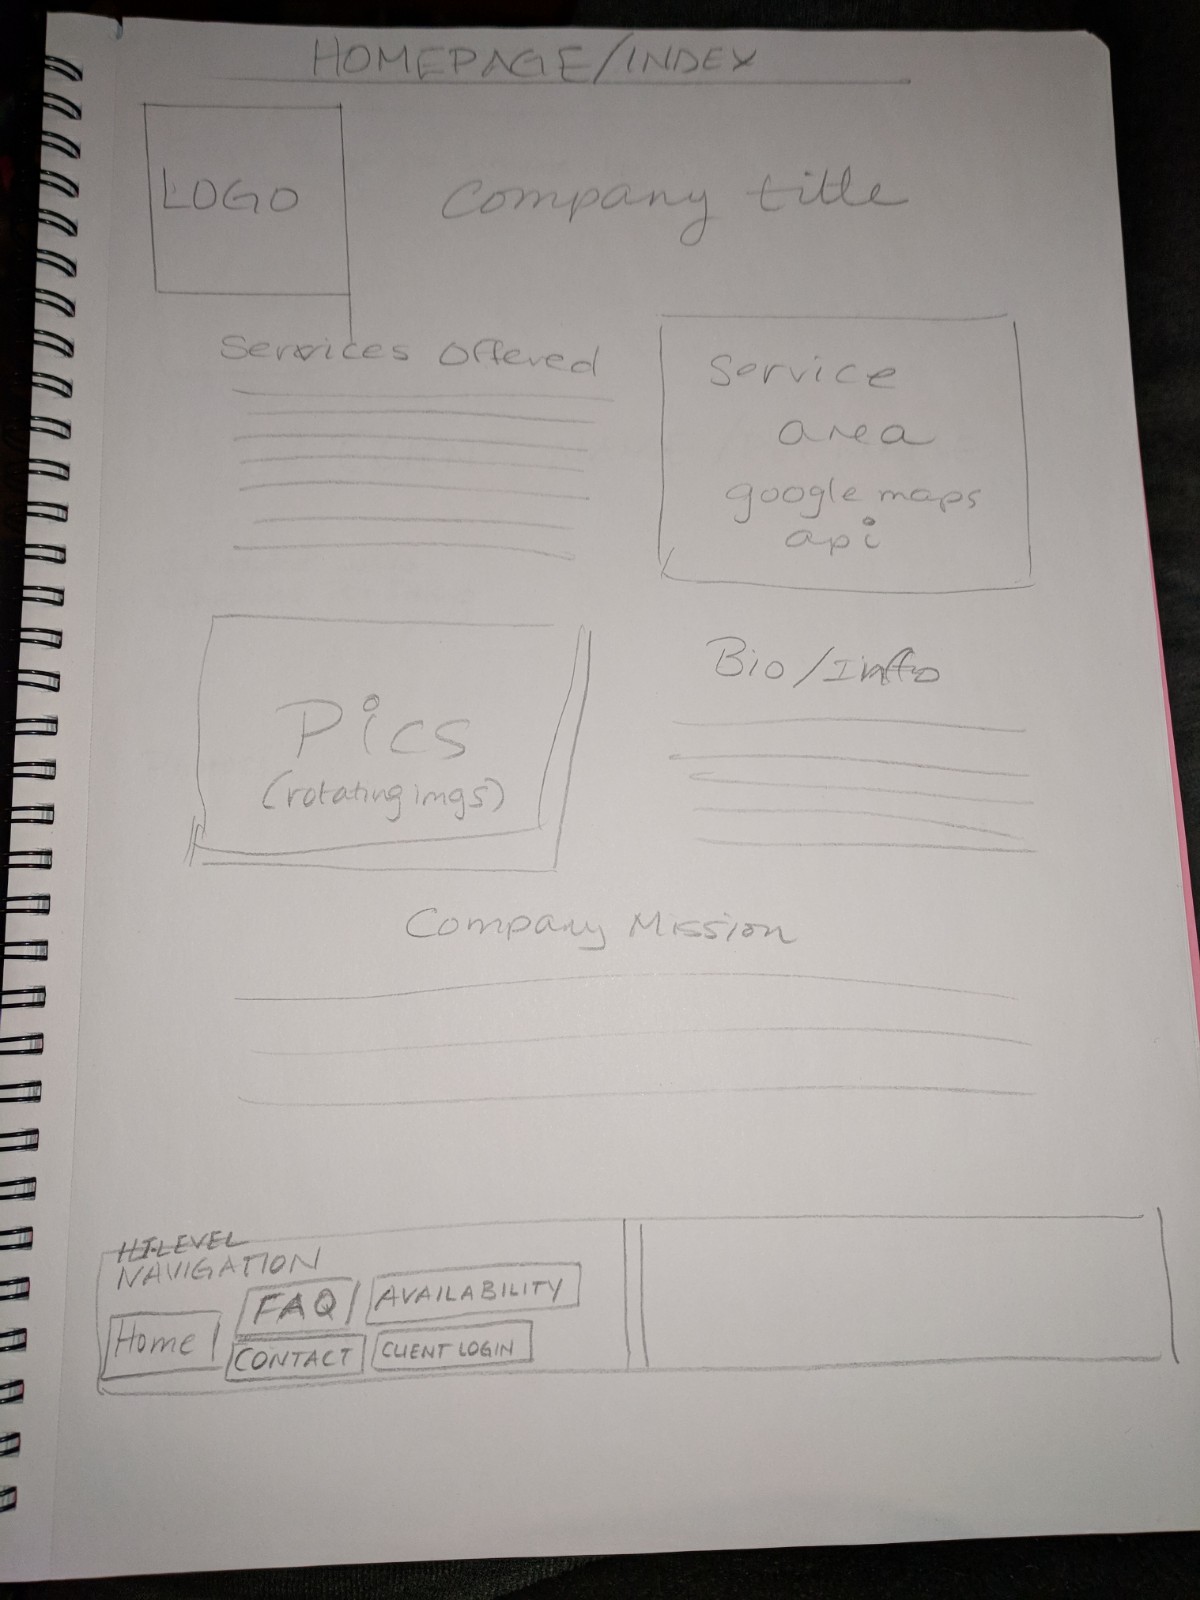 HOMEPAGE/INDEX
LOGO
Company title
Services Offered
Service
area
google maps
api
Pics
(rotating imgs)
Bio/Info
Company Mission
HI-LEVEL
NAVIGATION
Home
FAQ
AVAILABILITY
CONTACT
CLIENT LOGIN